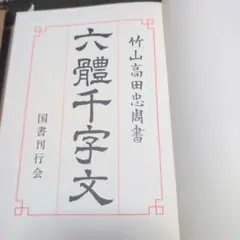 竹山高田忠周書
六體千字文
国書刊行会